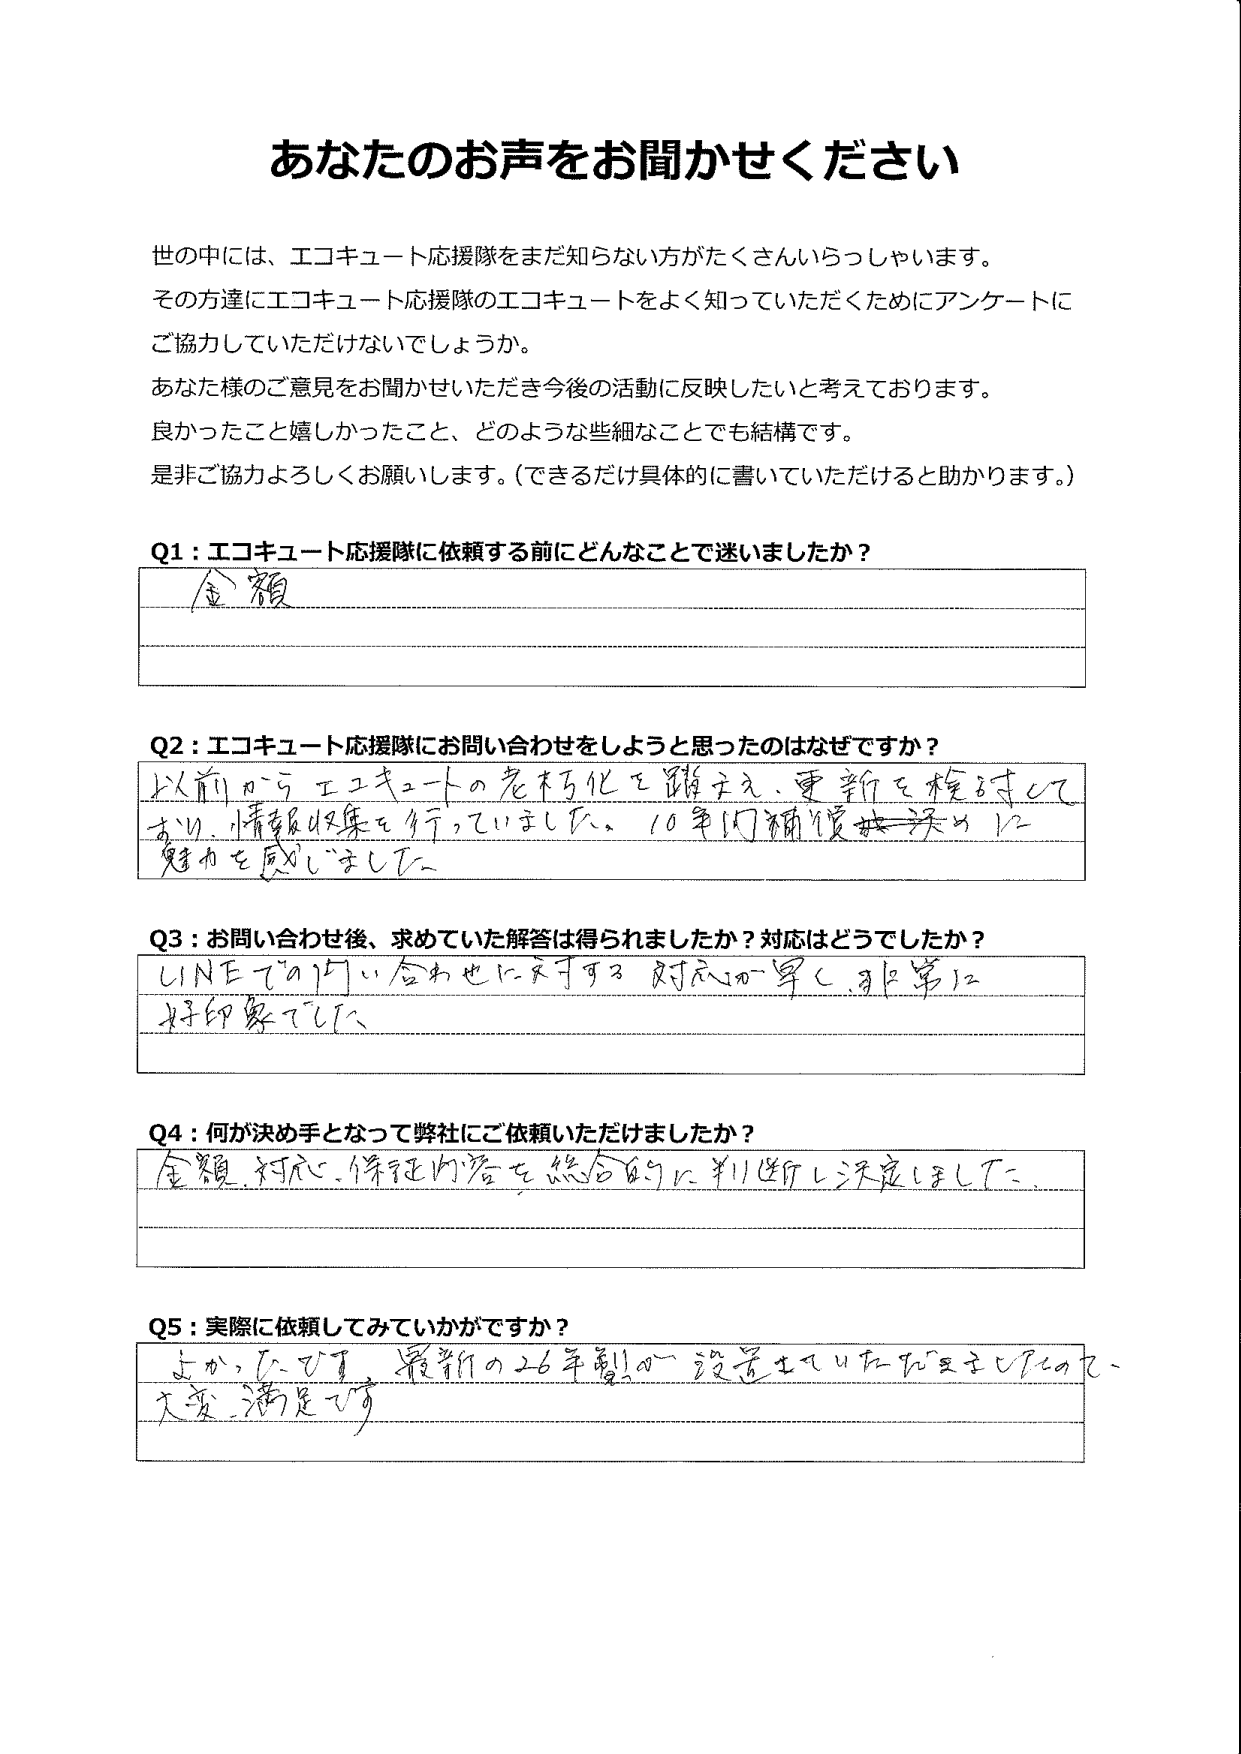 あなたのお声をお聞かせください
世の中には、エコキュート応援隊をまだ知らない方がたくさんいらっしゃいます。
その方達にエコキュート応援隊のエコキュートをよく知っていただくためにアンケートに
ご協力していただけないでしょうか。
あなた様のご意見をお聞かせいただき今後の活動に反映したいと考えております。
良かったこと嬉しかったこと、どのような些細なことでも結構です。
是非ご協力よろしくお願いします。（できるだけ具体的に書いていただけると助かります。）
Q1：エコキュート応援隊に依頼する前にどんなことで迷いましたか？
金額
Q2：エコキュート応援隊にお問い合わせをしようと思ったのはなぜですか？
以前からエコキュートの老朽化を踏まえ、更新を検討して
おり、情報収集を行っていました。10年間補償に
魅力を感じました
Q3：お問い合わせ後、求めていた解答は得られましたか？対応はどうでしたか？
LINEでの問い合わせに対する対応が早く、非常に
好印象でした
Q4：何が決め手となって弊社にご依頼いただけましたか？
金額、対応、保証内容を総合的に判断し決定しました、
Q5：実際に依頼してみていかがですか？
よかったです 最新の26年製が設置せていただきましたので、
大変、満足です